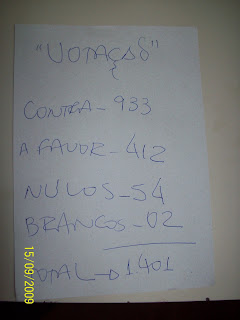 "VOTAÇÃO"
CONTRA - 933
A FAVOR - 412
NULOS - 54
BRANCOS - 02
TOTAL → 1.401
15/09/2009